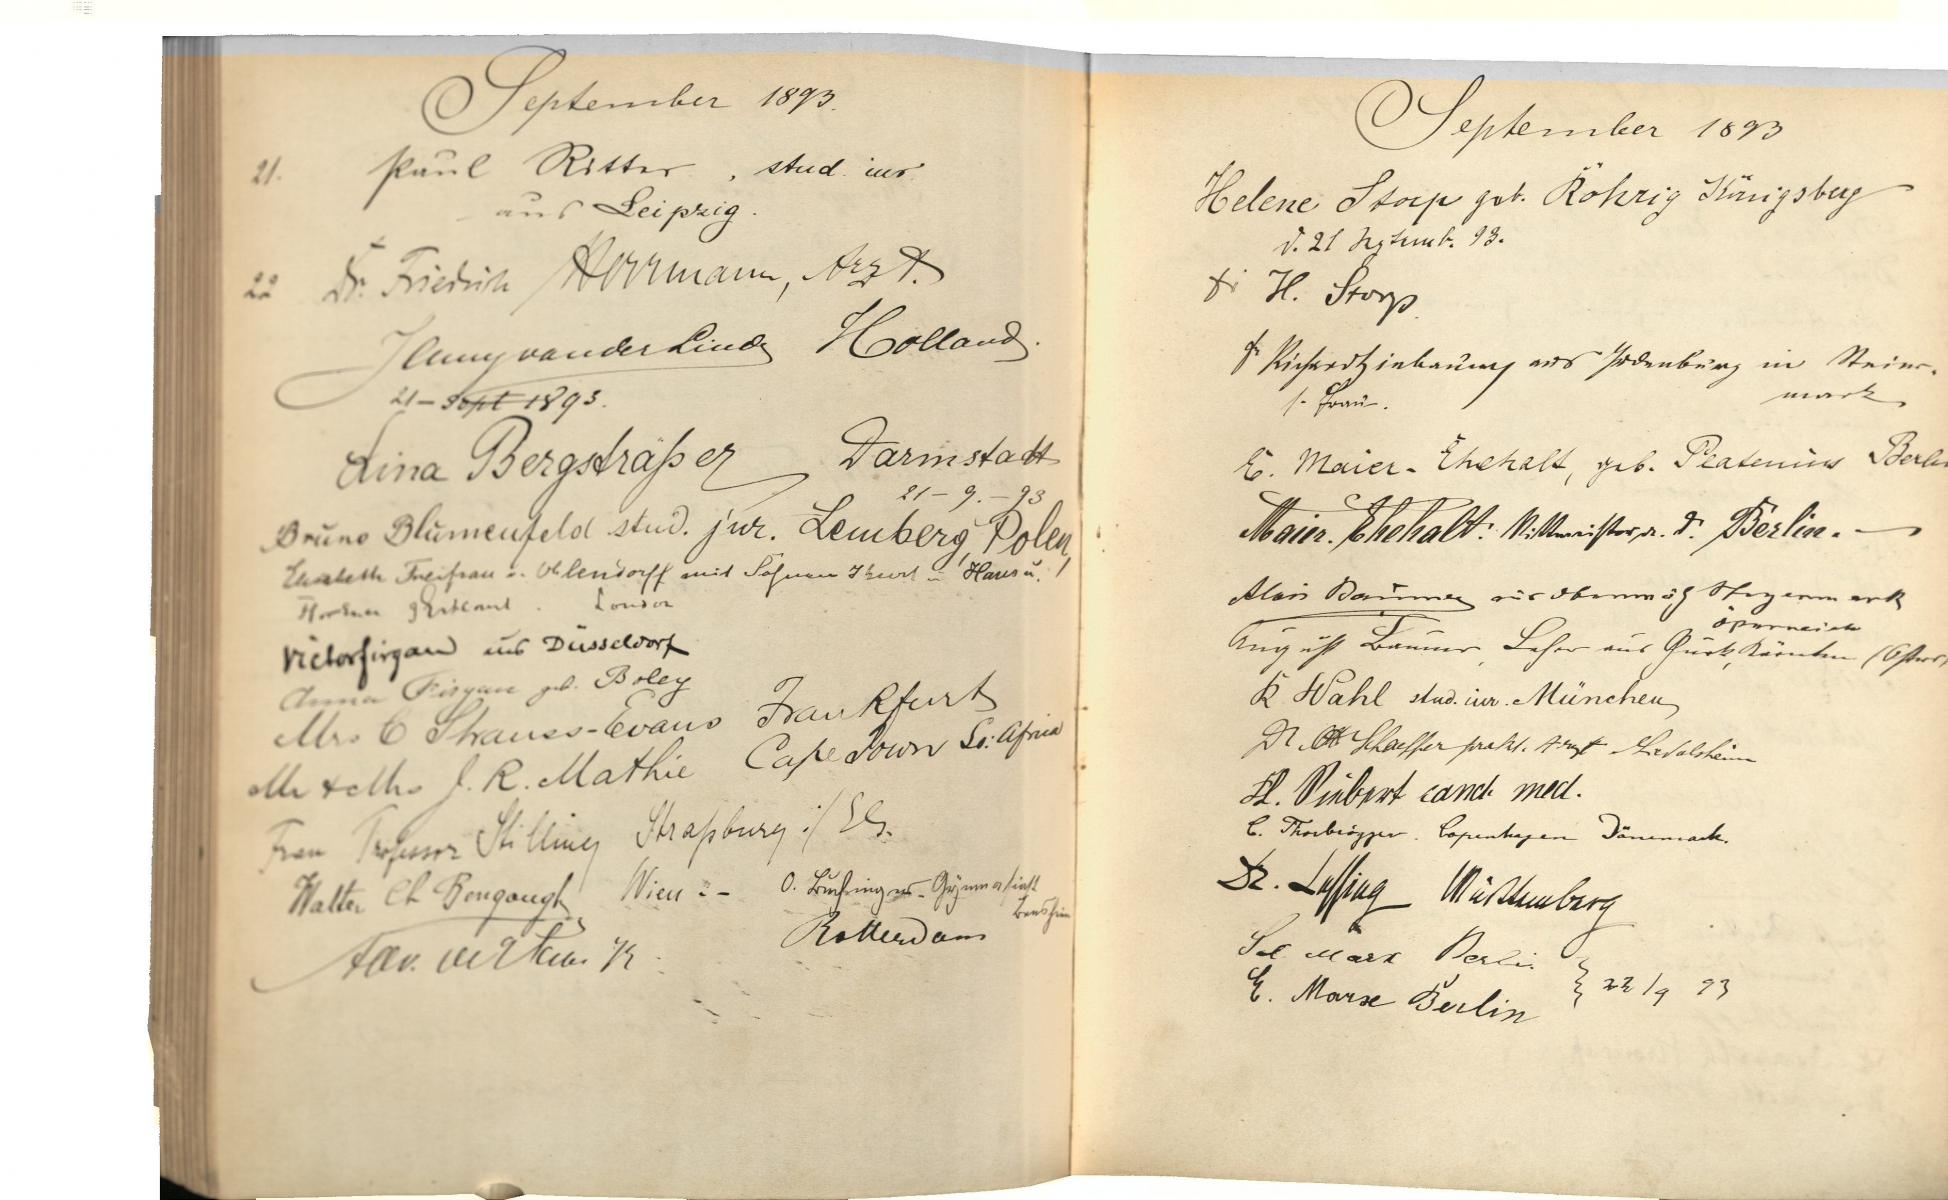 September 1893.
21. Paul Ritter, stud. iur.
aus Leipzig.
22 Dr. Friedrich Herrmann, Arzt.
van der Linde Holland.
21 – Sept 1893.
Lina Bergsträßer Darmstadt
21 – 9. – 93
Bruno Blumenfeld stud. jur. Lemberg, Polen,
Elisabeth Freifrau v. Ohlendorff mit Söhnen Kurt u. Hans u.
London
Victor Firgau aus Düsseldorf
Anna Firgau geb. Boley
Mrs C Strauss-Evans Frankfurt
Mr & Mrs J. R. Mathie Cape Town So: Africa
Frau Professor Stilling Straßburg i/Els.
Walter Ch Bengough Wien :- O.
Bensheim
Rotterdam
September 1893
Helene Storp geb. Röhrig Königsberg
d. 21 Septemb. 93.
H. Storp
aus Judenburg in Steier-
mark
s. Frau.
E. Maier-Ehehalt, geb. Platenius Berlin
Maier-Ehehalt. Rittmeister a. D. Berlin.
Alois Baumer aus Steyermark
August Baumer, Lehrer aus Gurk, Kärnten
K Wahl stud. iur. München
Schaeffer prakt. Arzt Liedolsheim
H. Siebert cand. med.
C. Copenhagen Dänemark.
Dr. Lessing Württemberg
Sal. Marx Berlin
E. Marx Berlin } 22/9 93